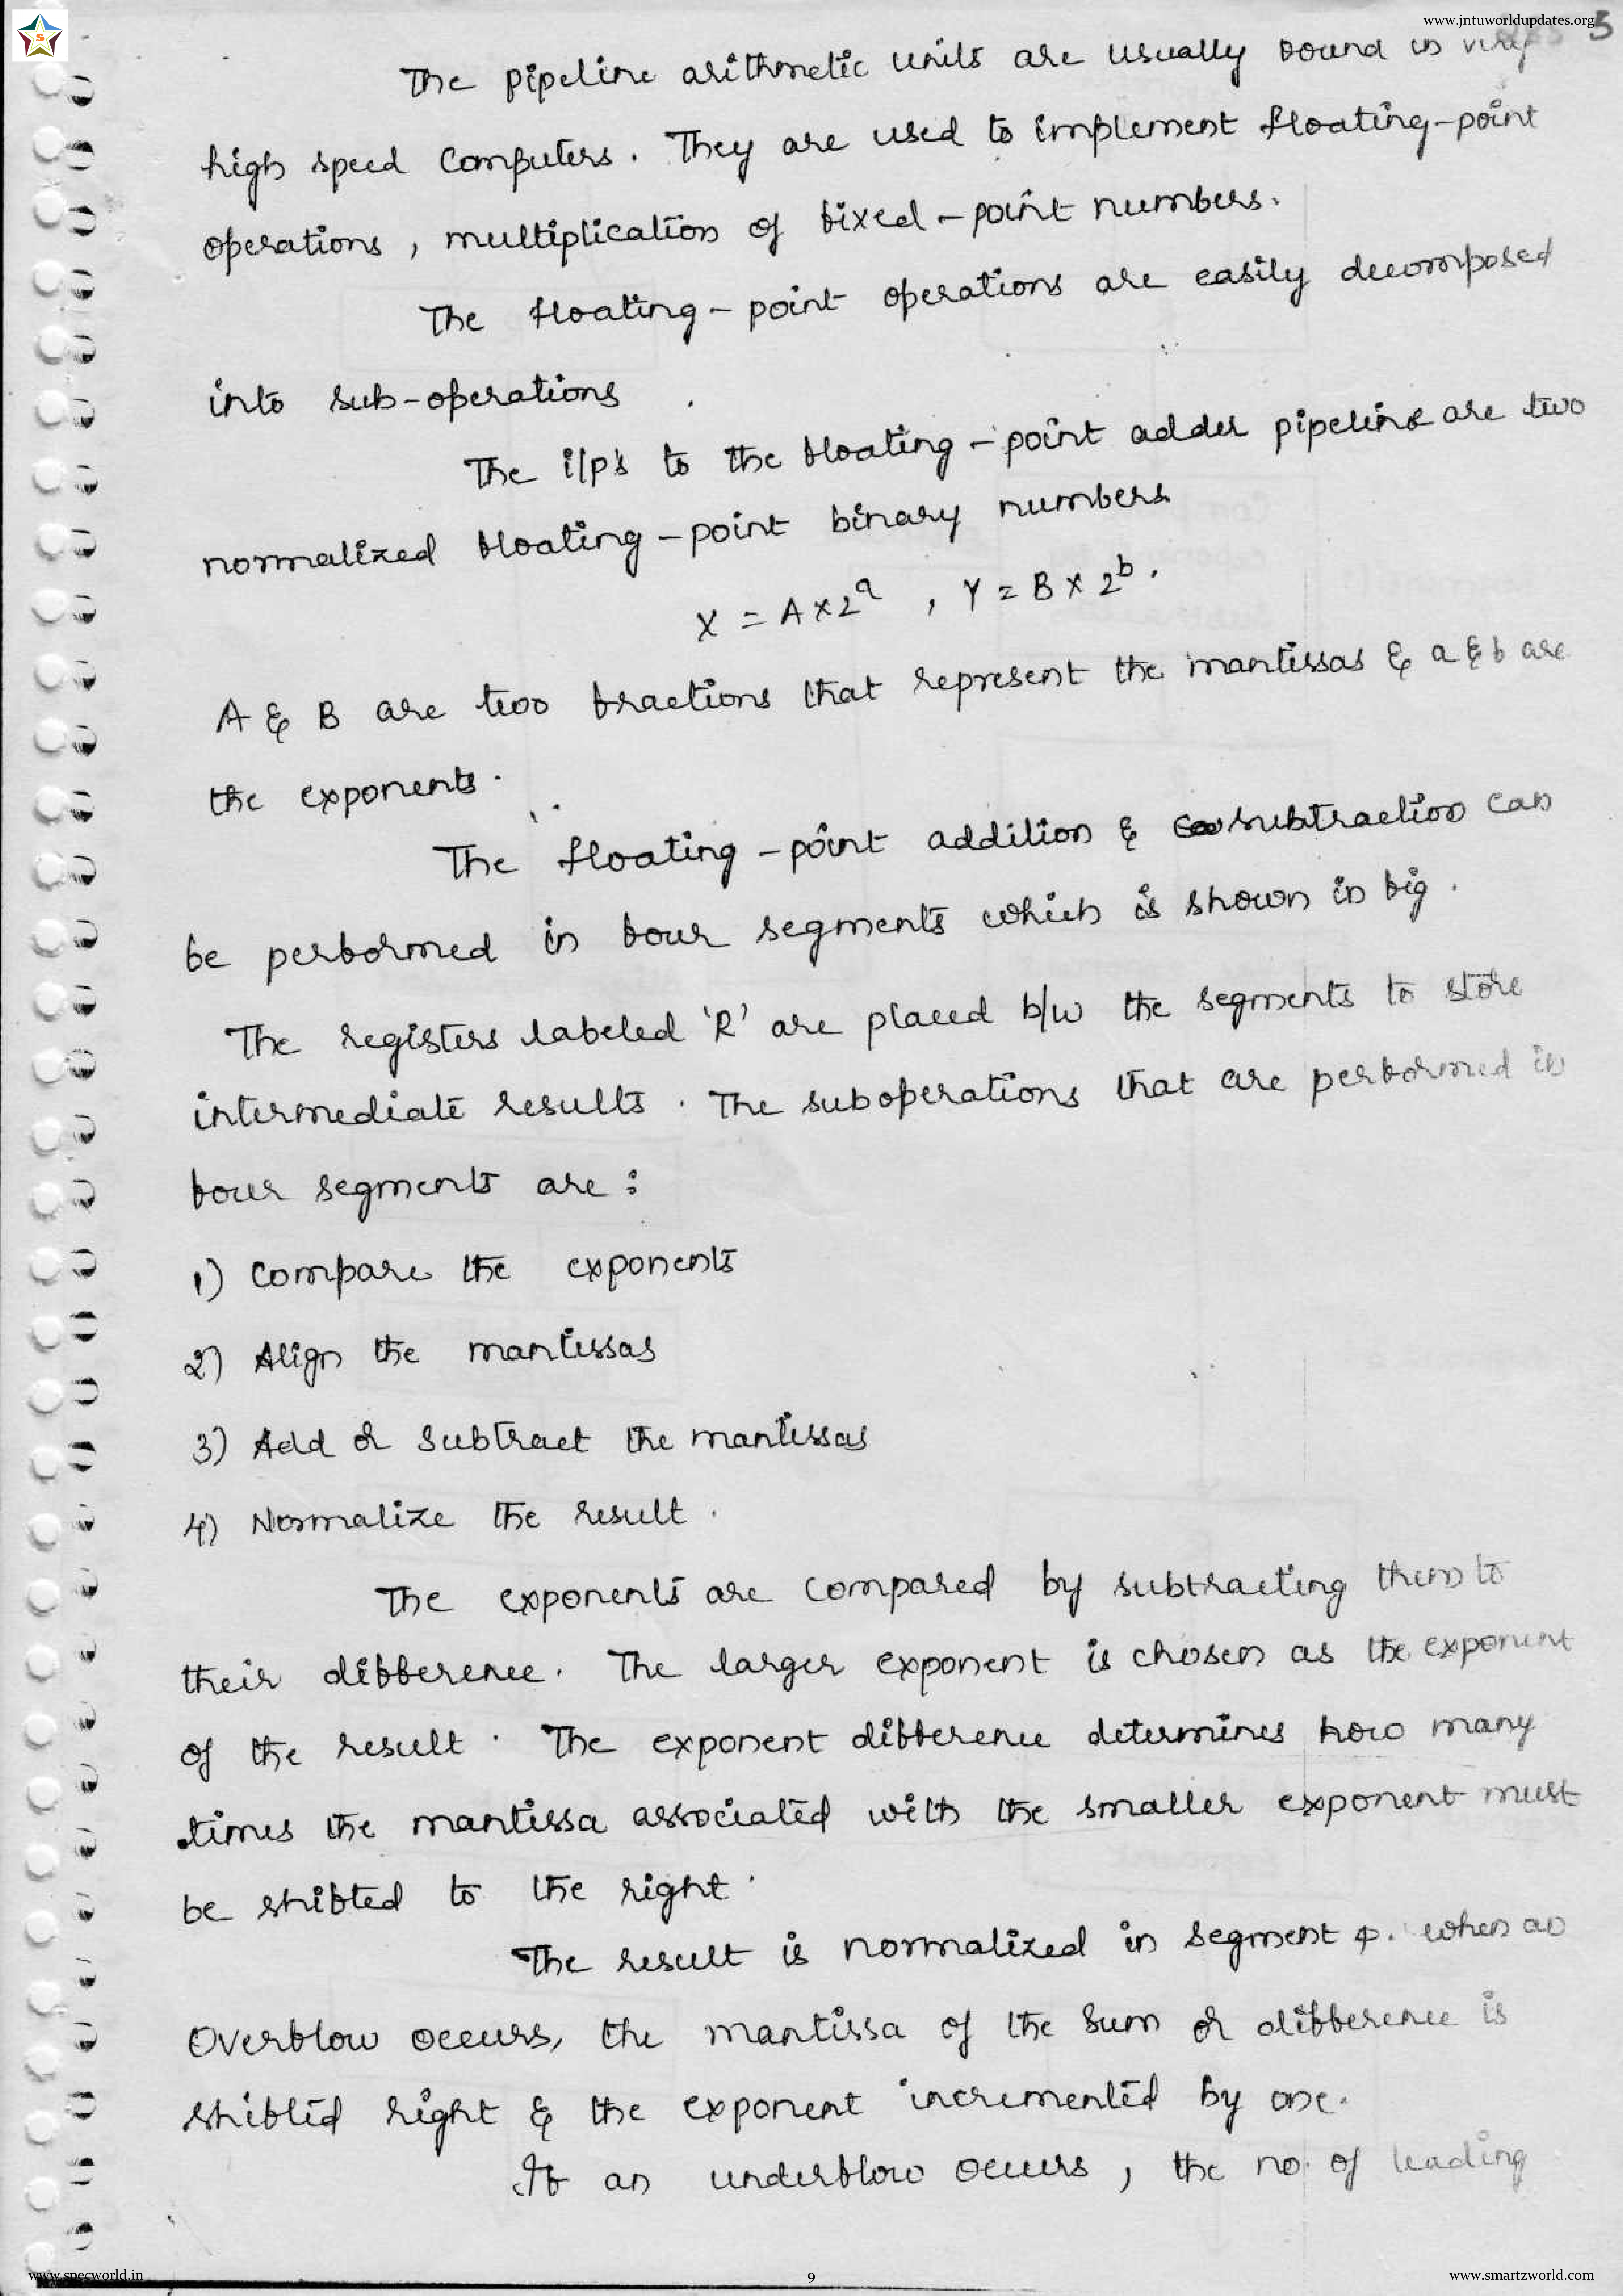 www.jntuworldupdates.org
5
The pipeline arithmetic units are usually found in very
high speed computers. They are used to implement floating-point
operations, multiplication of fixed-point numbers.
The floating-point operations are easily decomposed
into sub-operations.
The i/p's to the floating-point adder pipeline are two
normalized floating-point binary numbers
X = A x 2^a , Y = B x 2^b.
A & B are two fractions that represent the mantissas & a & b are
the exponents.
The floating-point addition & subtraction can
be performed in four segments which is shown in fig.
The registers labeled 'R' are placed b/w the segments to store
intermediate results. The suboperations that are performed in
four segments are:
1) Compare the exponents
2) Align the mantissas
3) Add or subtract the mantissas
4) Normalize the result.
The exponents are compared by subtracting them to
their difference. The larger exponent is chosen as the exponent
of the result. The exponent difference determines how many
times the mantissa associated with the smaller exponent must
be shifted to the right.
The result is normalized in segment 4. when an
Overflow occurs, the mantissa of the sum or difference is
shifted right & the exponent incremented by one.
If an underflow occurs, the no. of leading
www.specworld.in
9
www.smartzworld.com